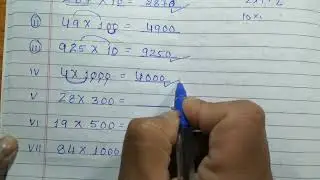 × 10 = 3870
II) 49 × 100 = 4900
III) 925 × 10 = 9250
IV 4 × 1000 = 4000
V 28 × 300 =
VI 19 × 500 =
VII 84 × 1000